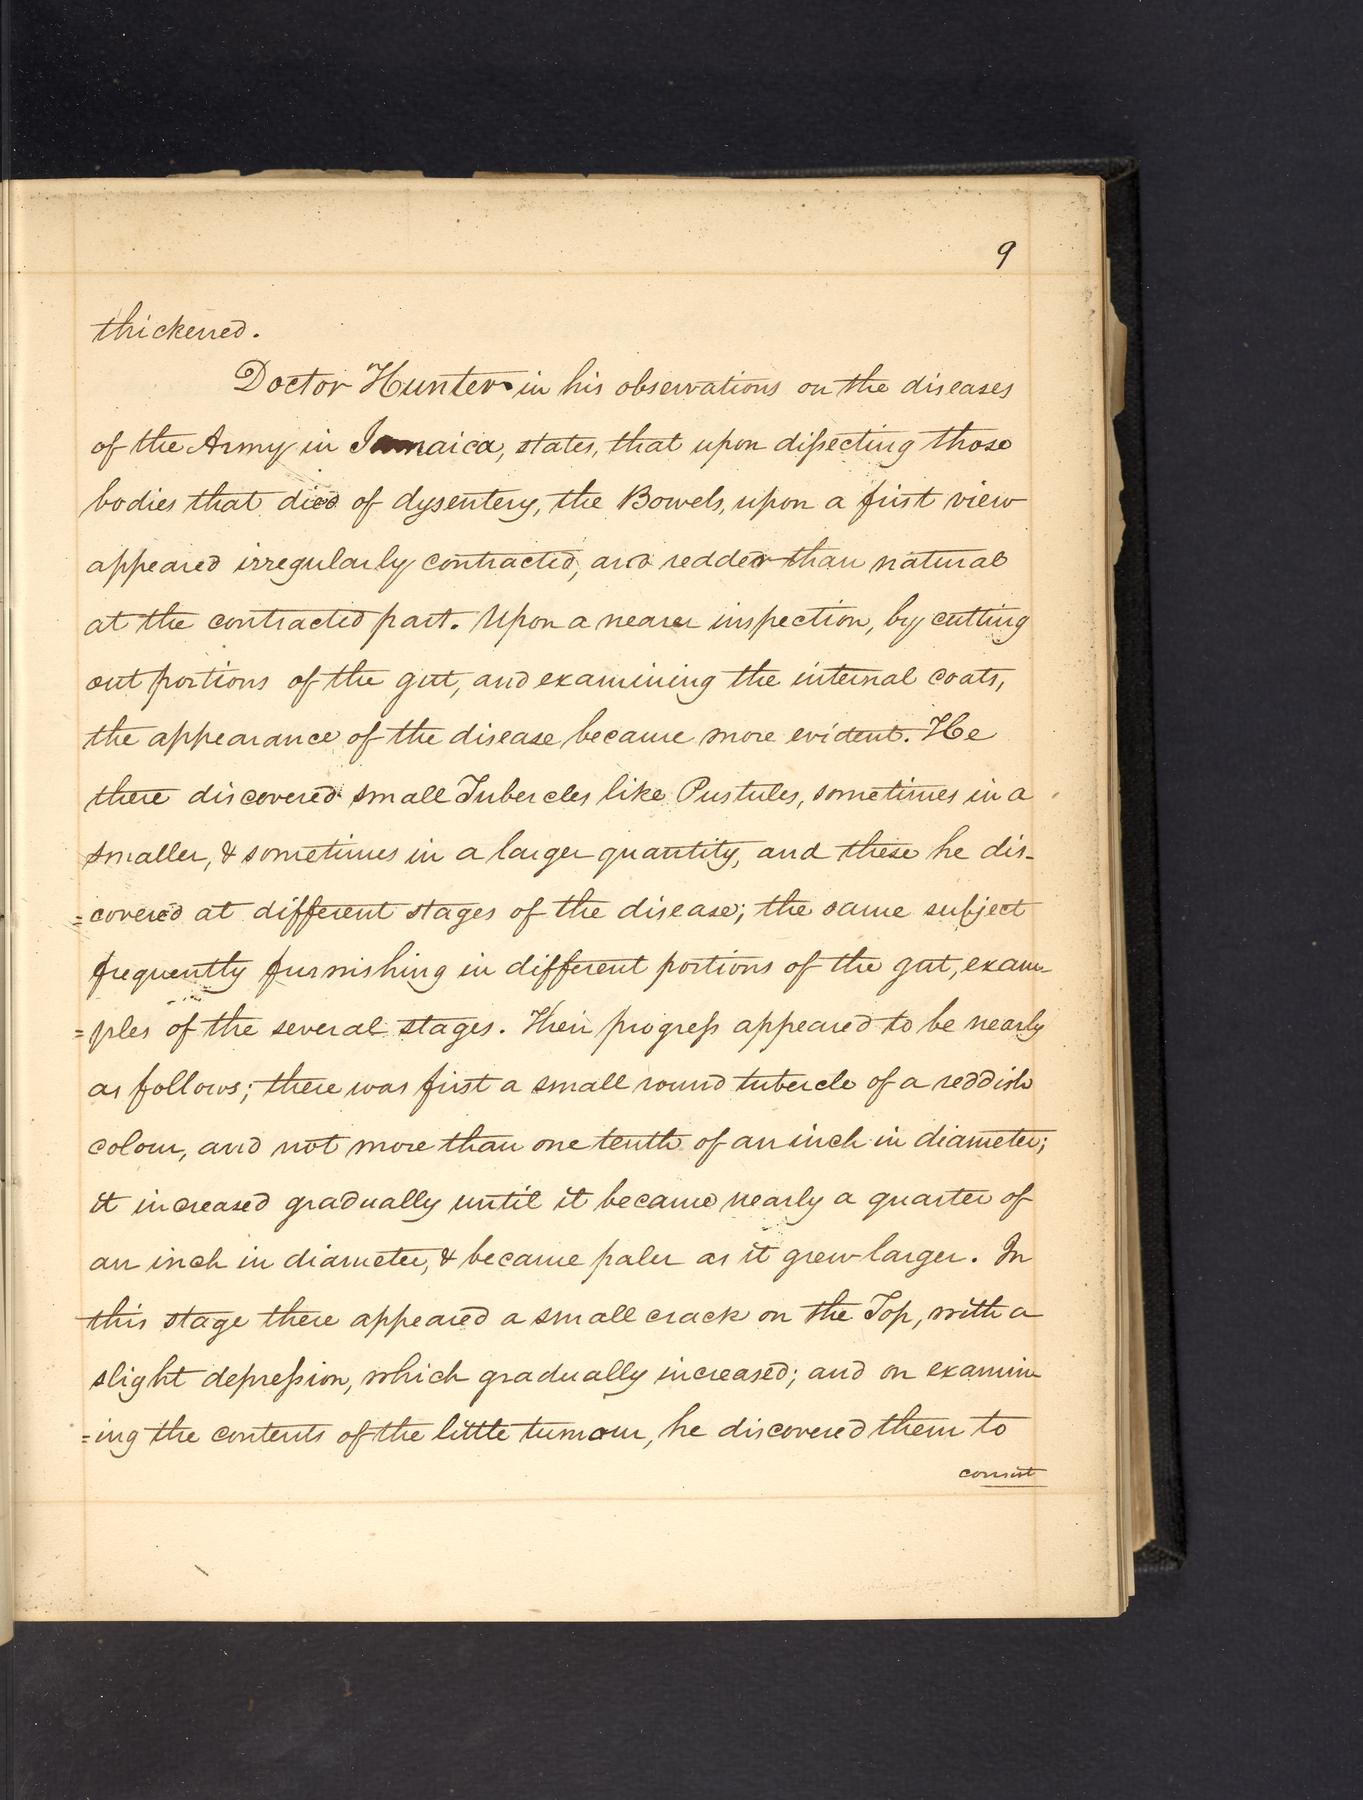 9
thickened.
Doctor Hunter in his observations on the diseases
of the Army in Jamaica, states, that upon dissecting those
bodies that died of dysentery, the Bowels, upon a first view
appeared irregularly contracted, and redder than natural
at the contracted part. Upon a nearer inspection, by cutting
out portions of the gut, and examining the internal coats,
the appearance of the disease became more evident. He
there discovered small Tubercles like Pustules, sometimes in a
smaller, & sometimes in a larger quantity, and these he dis-
=covered at different stages of the disease; the same subject
frequently furnishing in different portions of the gut, exam-
=ples of the several stages. Their progress appeared to be nearly
as follows; there was first a small round tubercle of a reddish
colour, and not more than one tenth of an inch in diameter;
it increased gradually until it became nearly a quarter of
an inch in diameter, & became paler as it grew larger. In
this stage there appeared a small crack on the Top, with a
slight depression, which gradually increased; and on examin
=ing the contents of the little tumour, he discovered them to
consist